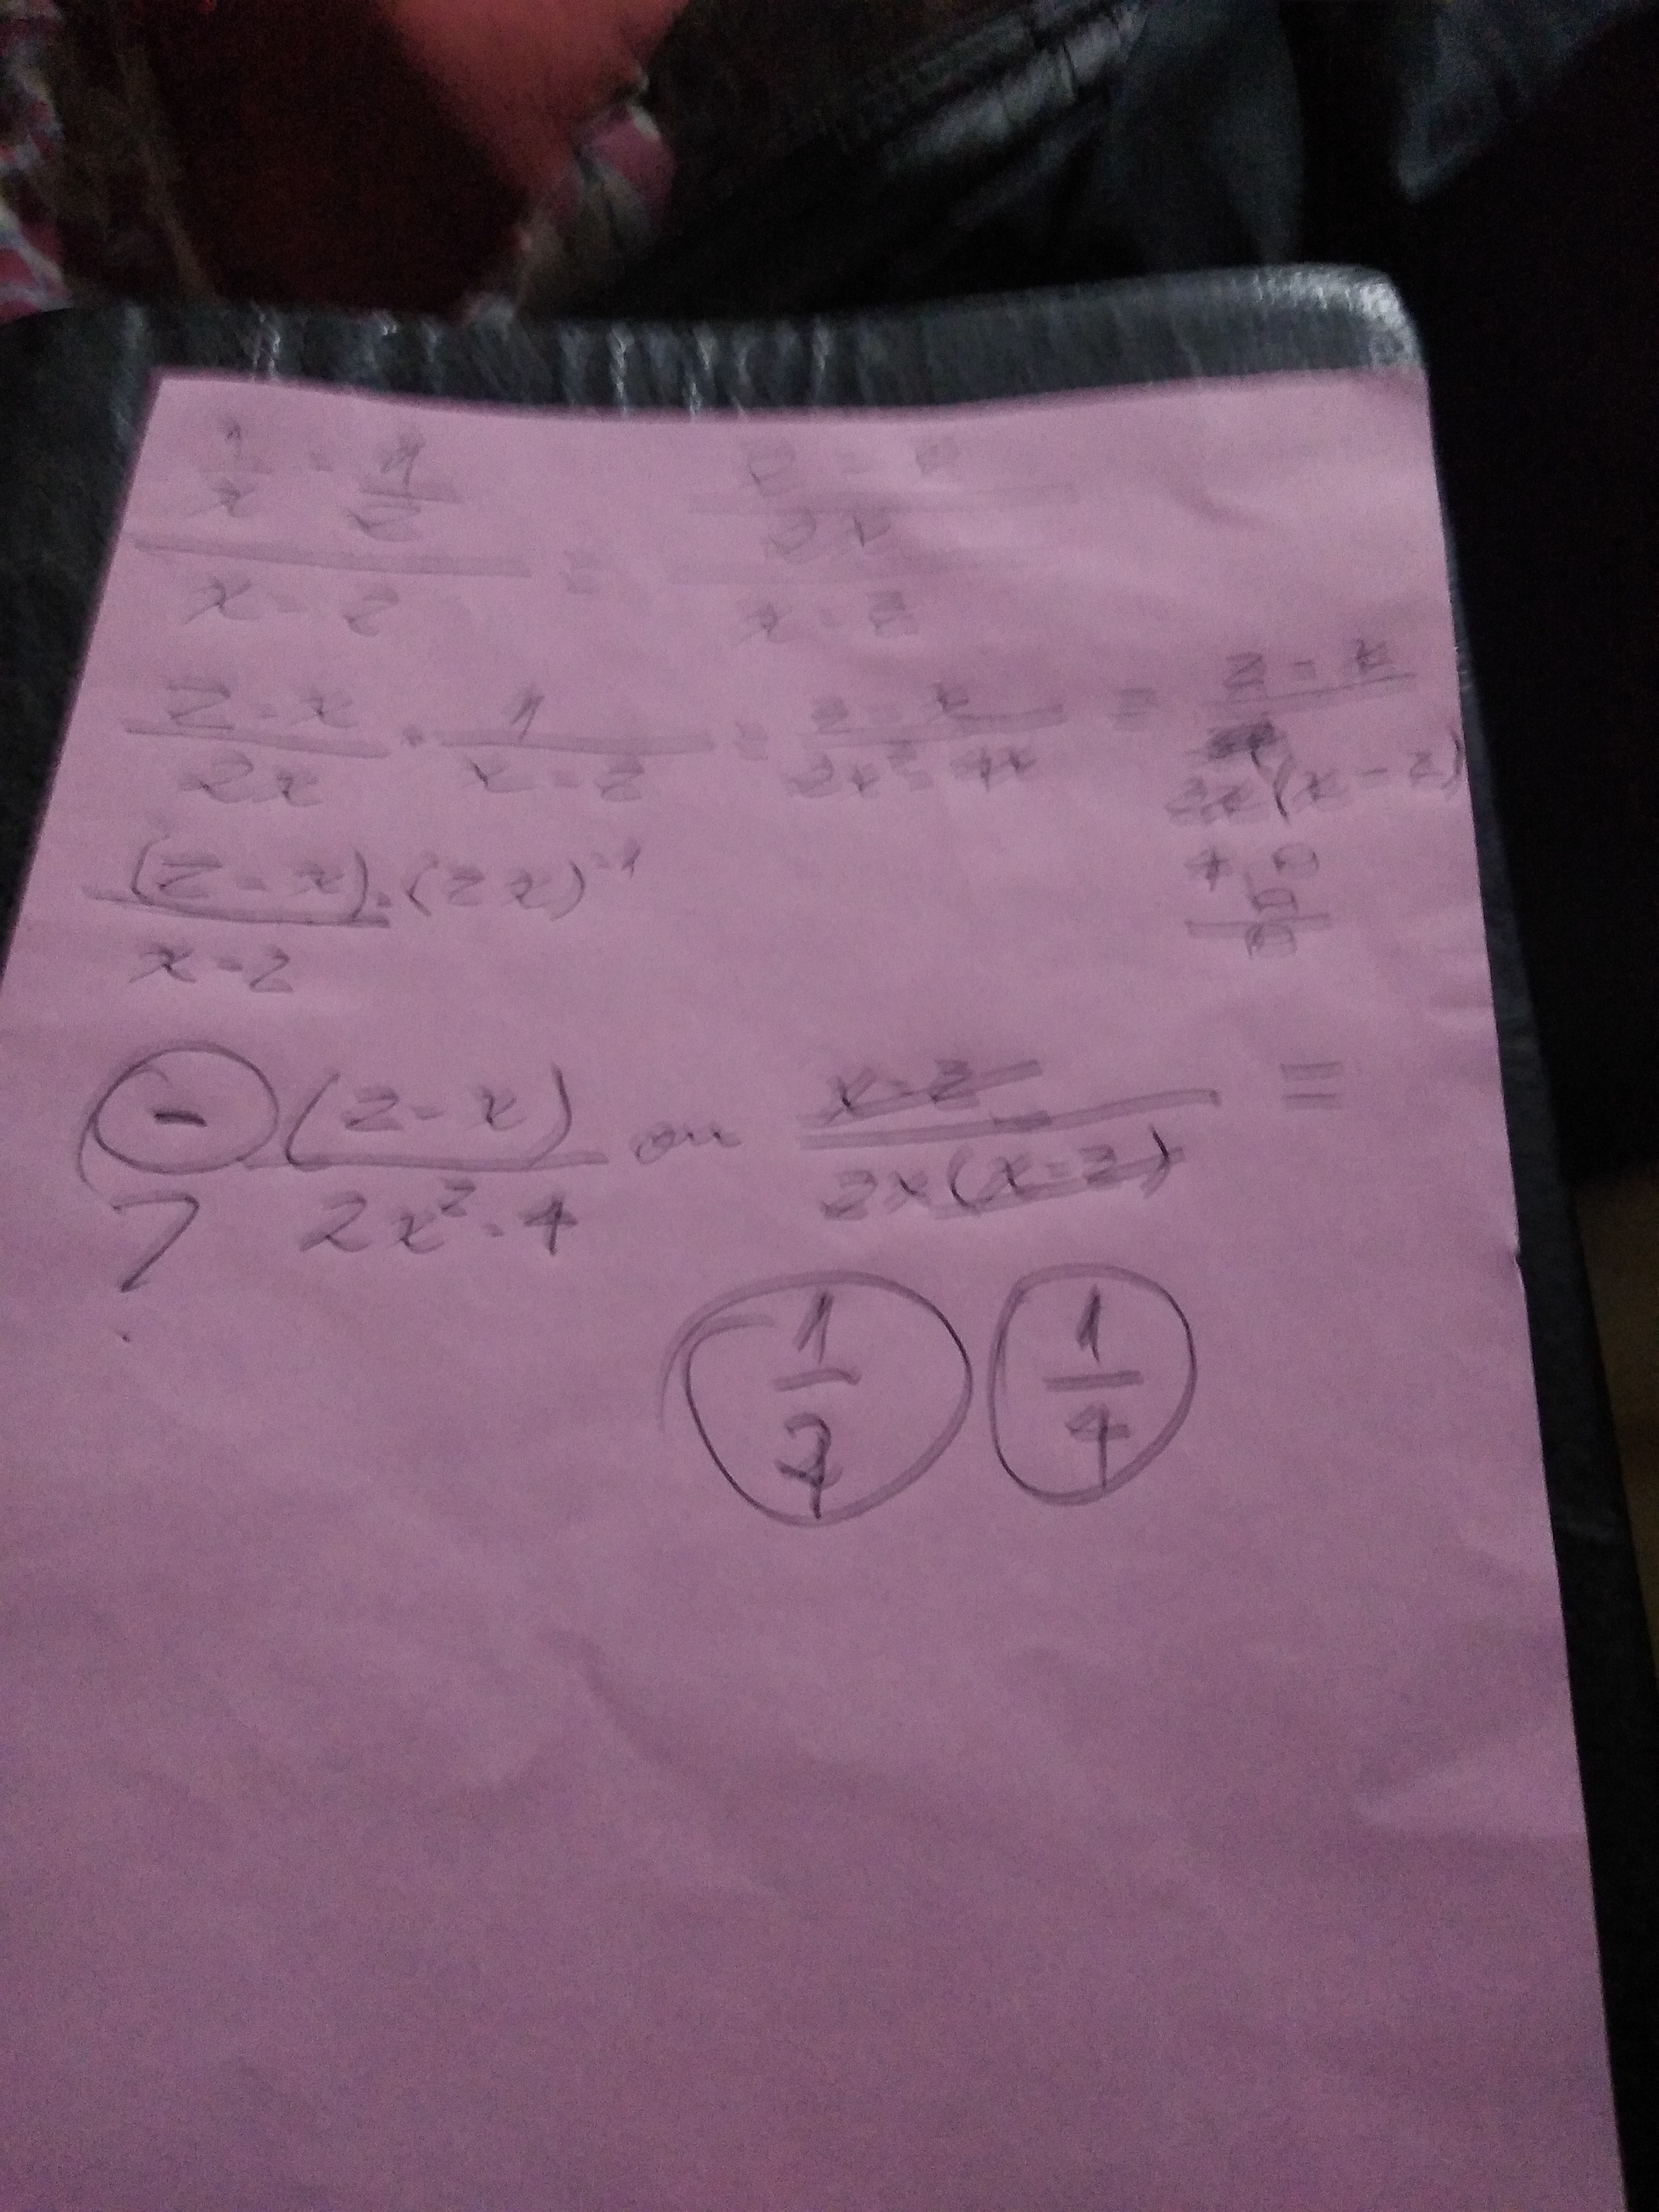 1/x - 1/2 / x - 2 = 2 - x / 2x / x - 2
2 - x / 2x · 1 / x - 2 = 2 - x / 2x² - 4x = 2 - x / 2x(x - 2)
(2 - x) · (2x)⁻¹ / x - 2
- (2 - x) / 2x² - 4 ou x - 2 / 2x(x - 2) =
1/2 1/4